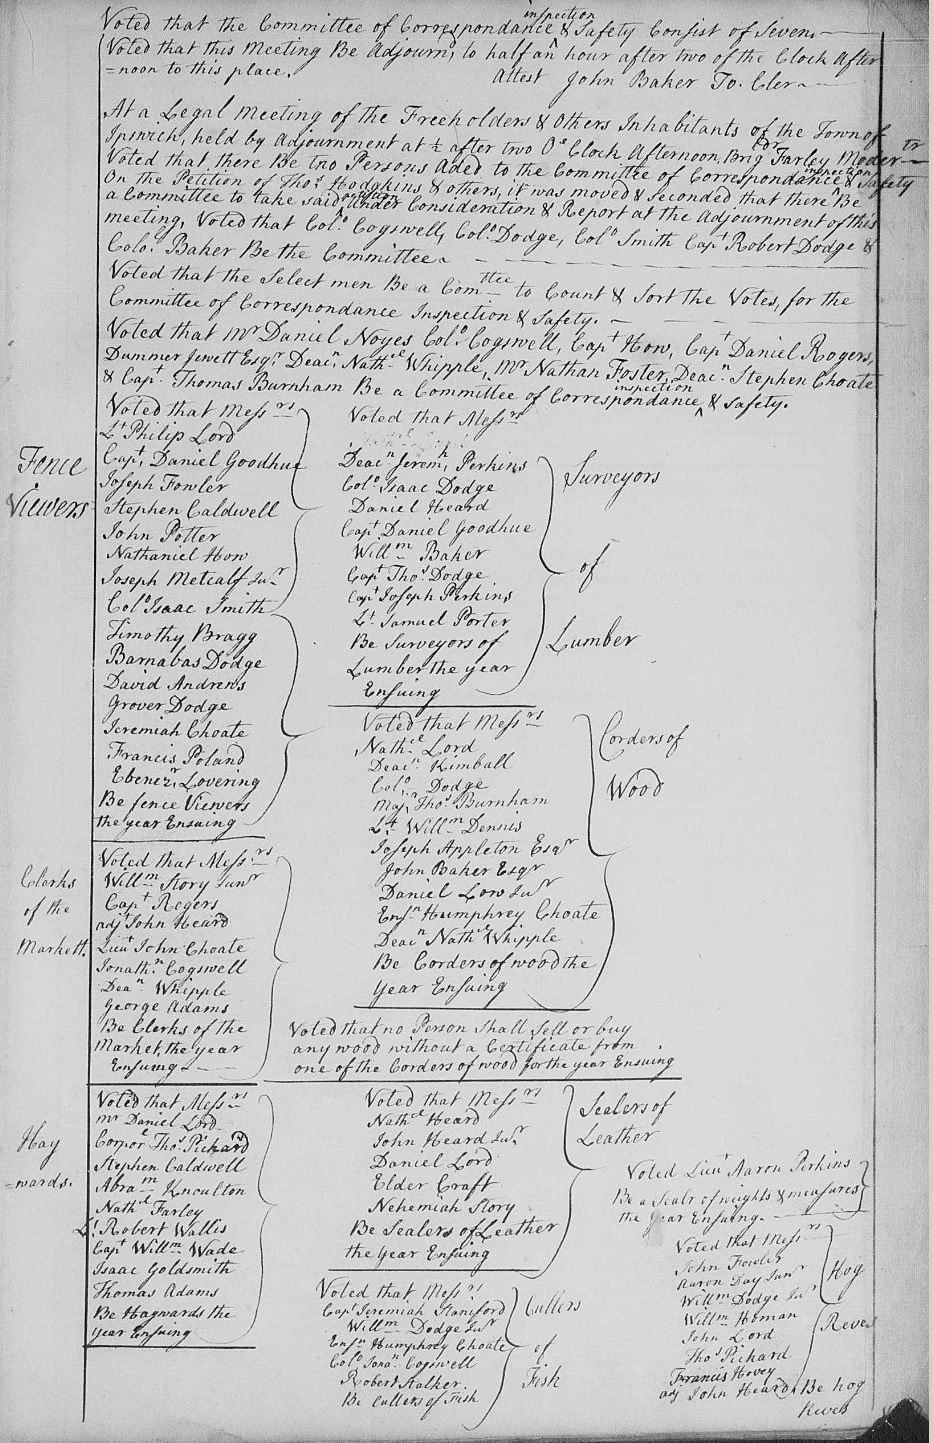 Voted that the Committee of Correspondance inspection & Safety Consist of Seven.
Voted that this Meeting Be Adjournd, to half an hour after two of the Clock After
=noon to this place. Attest John Baker To. Cler
At a Legal Meeting of the Freeholders & Others Inhabitants of the Town of
Ipswich, held by Adjournment at ½ after two O'Clock Afternoon, Brigdr Farley Moder=tr
Voted that there Be two Persons Aded to the Committee of Correspondance inspection & Safety
On the Petition of Thos Hodgkins & others, it was moved & seconded that there Be
a Committee to take said petition Under Consideration & Report at the Adjournment of this
meeting, Voted that Colo Cogswell, Colo Dodge, Colo Smith Capt Robert Dodge &
Colo Baker Be the Committee.
Voted that the Select men Be a Comttee to Count & Sort the Votes, for the
Committee of Correspondance Inspection & Safety.
Voted that Mr Daniel Noyes Colo Cogswell, Capt How, Capt Daniel Rogers,
Dummer Jewett Esqr, Deacn Nathel Whipple, Mr Nathan Foster, Deacn Stephen Choate
& Capt Thomas Burnham Be a Committee of Correspondance, inspection & Safety.
Fence
Viewers
Voted that Messrs
Lt Philip Lord
Capt Daniel Goodhue
Joseph Fowler
Stephen Caldwell
John Potter
Nathaniel How
Joseph Metcalf Junr
Colo Isaac Smith
Timothy Bragg
Barnabas Dodge
David Andrews
Grover Dodge
Jeremiah Choate
Francis Poland
Ebenezr Lovering
Be fence Viewers
the year Ensuing
Voted that Messrs
Deacn Jeremh Perkins
Colo Isaac Dodge
Daniel Heard
Capt Daniel Goodhue
Willm Baker
Capt Thos Dodge
Capt Joseph Perkins
Lt Samuel Porter
Be Surveyors of
Lumber the year
Ensuing
Surveyors
of
Lumber
Voted that Messrs
Nathel Lord
Deacn Kimball
Colo Dodge
Majr Thos Burnham
Lt Willm Dennis
Joseph Appleton Esqr
John Baker Esqr
Daniel Low Junr
Ensn Humphrey Choate
Deacn Nathel Whipple
Be Corders of wood the
year Ensuing
Corders of
Wood
Clerks
of the
Markett.
Voted that Messrs
Willm Story Junr
Capt Rogers
adjt John Heard
Lieut John Choate
Jonathn Cogswell
Dean Whipple
George Adams
Be Clerks of the
Market, the year
Ensuing
Voted that no Person Shall Sell or buy
any wood without a Certificate from
one of the Corders of wood for the year Ensuing
Hay
=wards.
Voted that Messrs
mr Daniel Lord
Corporl Thos Pickard
Stephen Caldwell
Abram Knoulton
Nathel Farley
Lt Robert Wallis
Capt Willm Wade
Isaac Goldsmith
Thomas Adams
Be Haywards the
year Ensuing
Voted that Messrs
Nathel Heard
John Heard Junr
Daniel Lord
Elder Craft
Nehemiah Story
Be Sealers of Leather
the Year Ensuing
Sealers of
Leather
Voted that Messrs
Capt Jeremiah Staniford
Willm Dodge Junr
Ensn Humphrey Choate
Colo Jonan Cogswell
Robert Stalker
Be Cullers of Fish
Cullers
of
Fish
Voted Lieut Aaron Perkins
Be a Sealr of weights & measures
the year Ensuing.
Voted that Messrs
John Fowler
Aaron Day Junr
Willm Dodge Junr
Willm Homan
John Lord
Thos Pickard
Francis Hovey
adj John Heard, Be hog
Reves
Hog
Reves